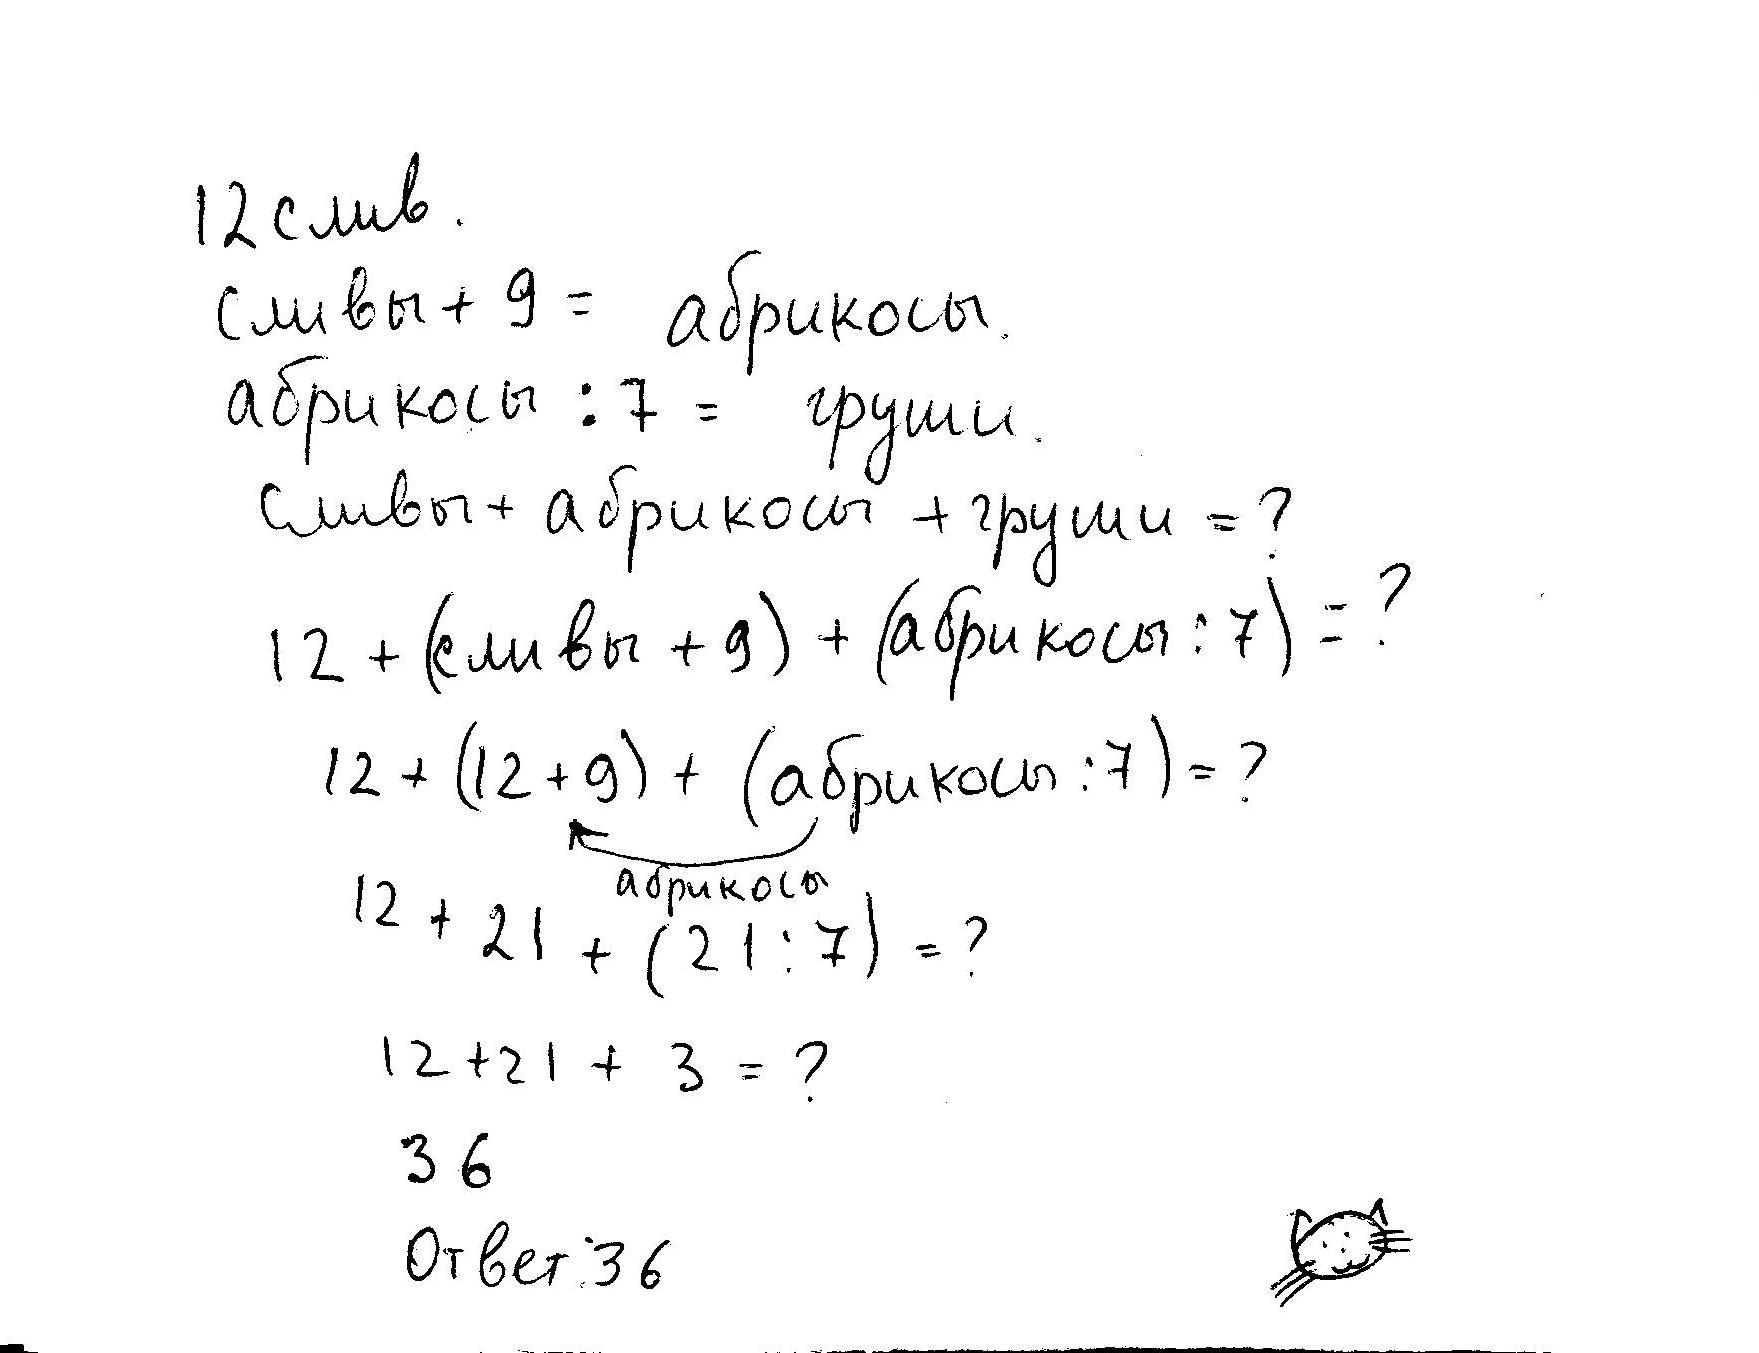 12 слив.
сливы + 9 = абрикосы.
абрикосы : 7 = груши.
сливы + абрикосы + груши = ?
12 + (сливы + 9) + (абрикосы : 7) = ?
12 + (12 + 9) + (абрикосы : 7) = ?
абрикосы
12 + 21 + (21 : 7) = ?
12 + 21 + 3 = ?
36
Ответ: 36